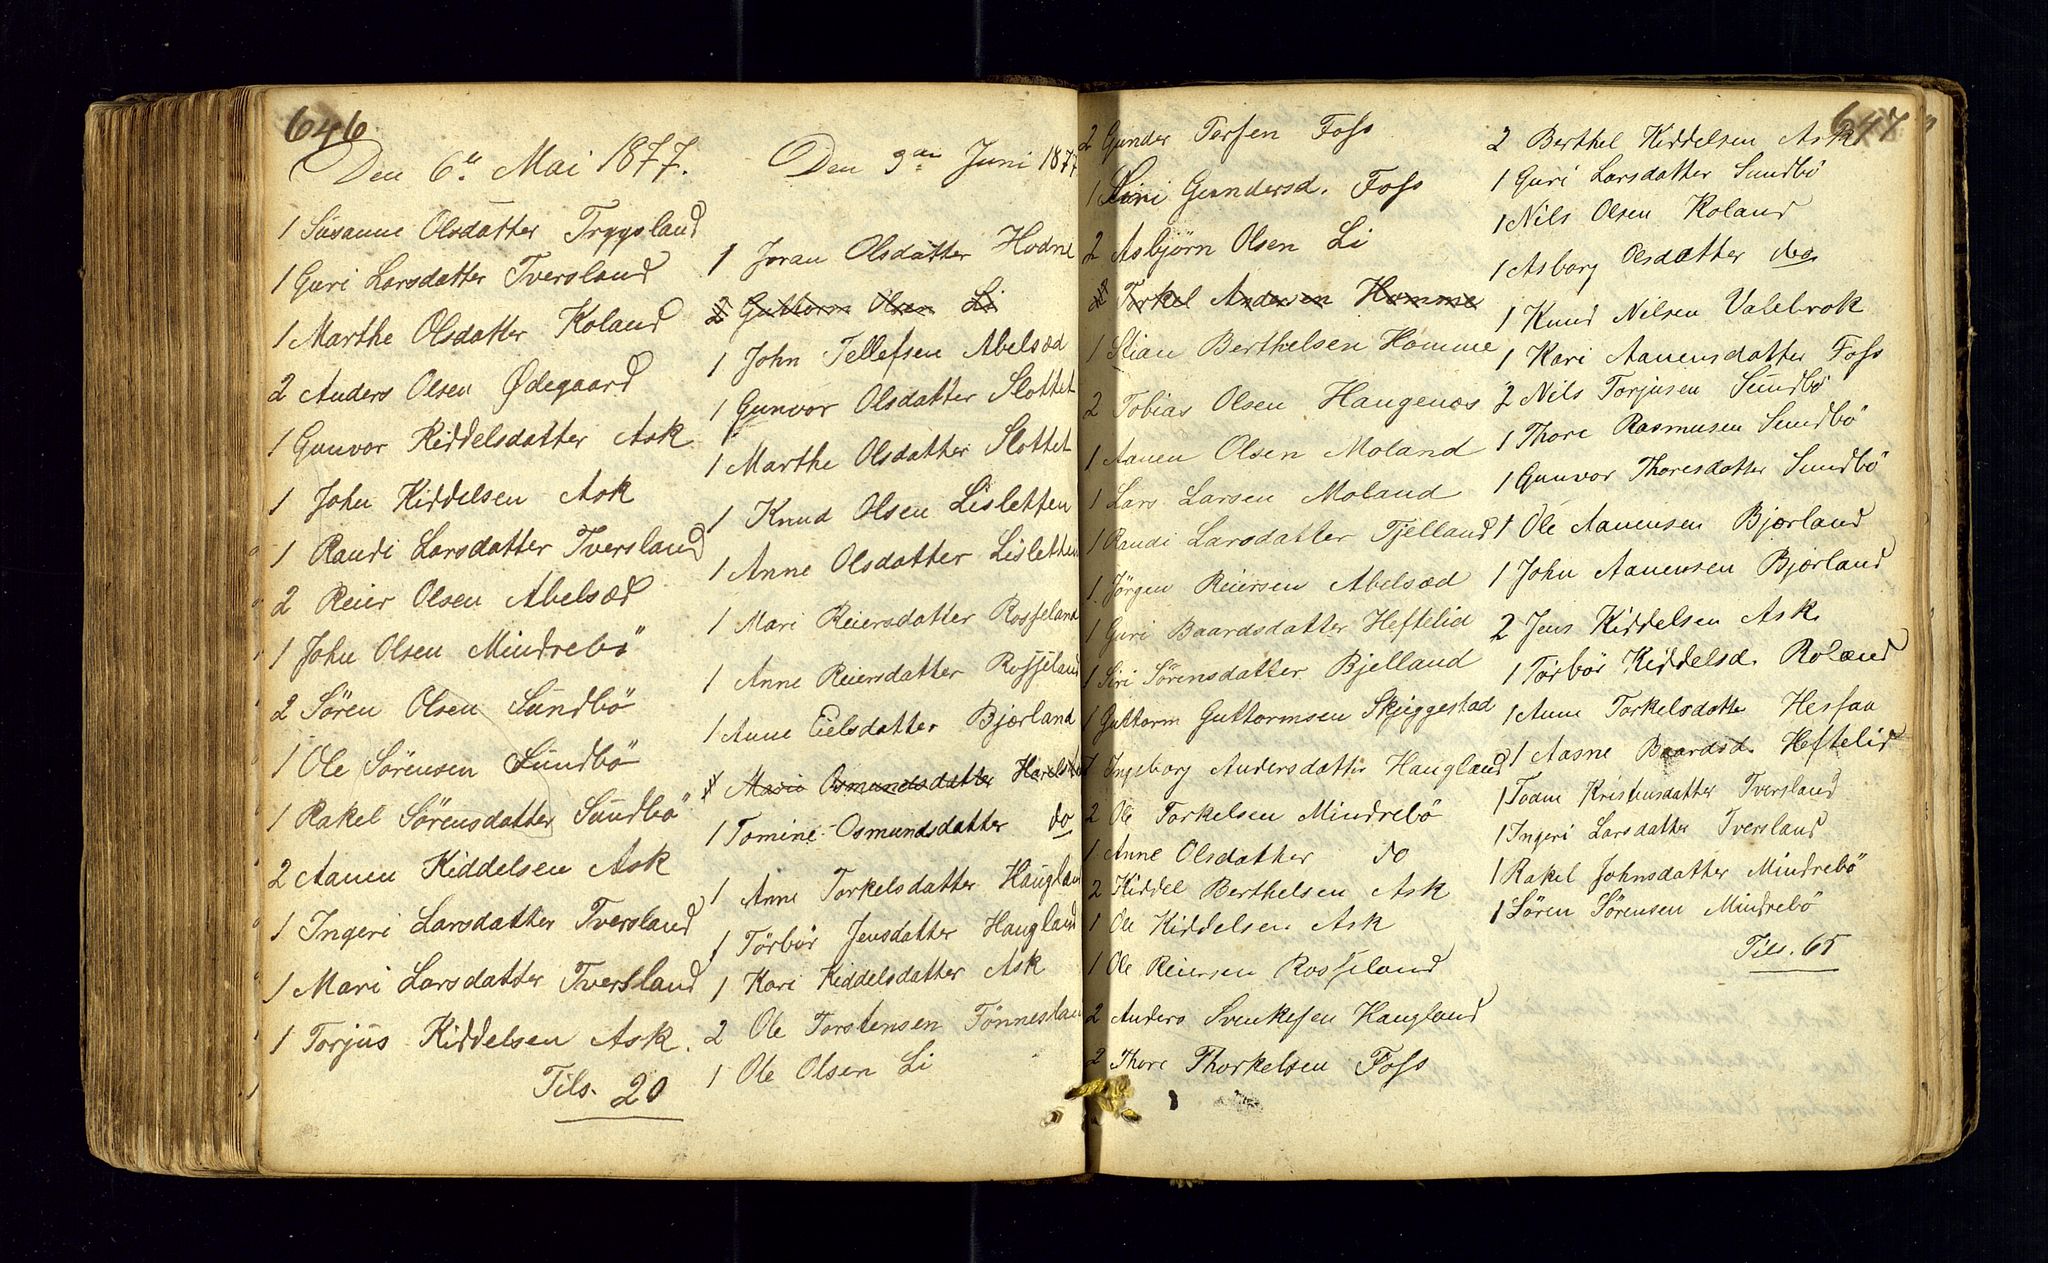 646
Den 6te Mai 1877.
1 Susanne Olsdatter Trygsland
1 Guri Larsdatter Tversland
1 Marthe Olsdatter Koland
2 Anders Olsen Ødegaard
1 Gunvor Kiddelsdatter Ask
1 John Kiddelsen Ask
1 Randi Larsdatter Tversland
2 Reier Olsen Abelsæd
1 John Olsen Mindrebö
2 Sören Olsen Sundbö
1 Ole Sörensen Sundbö
1 Rakel Sörensdatter Sundbö
2 Aanen Kiddelsen Ask
1 Ingeri Larsdatter Tversland
1 Mari Larsdatter Tversland
1 Torjus Kiddelsen Ask.
Tils. 20
Den 3die Juni 1877
1 Joran Olsdatter Hodne
2 Guttorm Olsen Li
1 John Tellefsen Abelsæd
1 Gunvor Olsdatter Slottet
1 Marthe Olsdatter Slottet
1 Knud Olsen Lisletten
1 Anne Olsdatter Lisletten
1 Mari Reiersdatter Rosseland
1 Anne Reiersdatter Rosseland
1 Anne Eielsdatter Bjærland
1 Maria Osmundsdatter
1 Tomine Osmundsdatter do
1 Anne Torkelsdatter Haugland
1 Törbör Jensdatter Haugland
1 Kari Kiddelsdatter Ask
2 Ole Torstensen Tönnesland
1 Ole Olsen Li
647
2 Gunder Terjsen Foss
1 Siri Gundersd. Foss
2 Asbjörn Olsen Li
2 Torkel Andersen Homme
1 Stian Berthelsen Homme
2 Tobias Olsen Haugenæs
1 Aanen Olsen Moland
1 Lars Larsen Moland
1 Randi Larsdatter Fjelland
1 Jörgen Reiersen Abelsæd
1 Guri Baardsdatter Heftelid
1 Siri Sörensdatter Bjelland
1 Guttorm Guttormsen Skjeggestad
1 Ingeborg Andersdatter Haugland
2 Ole Torkelsen Mindrebö
1 Anne Olsdatter do
2 Kiddel Berthelsen Ask
1 Ole Kiddelsen Ask
1 Ole Reiersen Rosseland
2 Anders Svenkesen Haugland
2 Thore Thorkelsen Foss
2 Berthel Kiddelsen Ask
1 Guri Larsdatter Sundbö
1 Nils Olsen Koland
1 Asborg Olsdatter do
1 Knud Nilsen Valebrok
1 Kari Aanensdatter Foss
2 Nils Torjusen Sundbö
1 Thore Rasmusen Sundbö
1 Gunvor Thoresdatter Sundbö
1 Ole Aanensen Bjærland
1 John Aanensen Bjærland
2 Jens Kiddelsen Ask
1 Törbör Kiddelsd. Roland
1 Anne Torkelsdatter Hesfaa
1 Aasne Baardsd. Heftelid
1 Kristensdatter Tversland
1 Ingeri Larsdatter Tversland
1 Rakel Johnsdatter Mindrebö
1 Sören Sörensen Mindrebö
Tils. 65